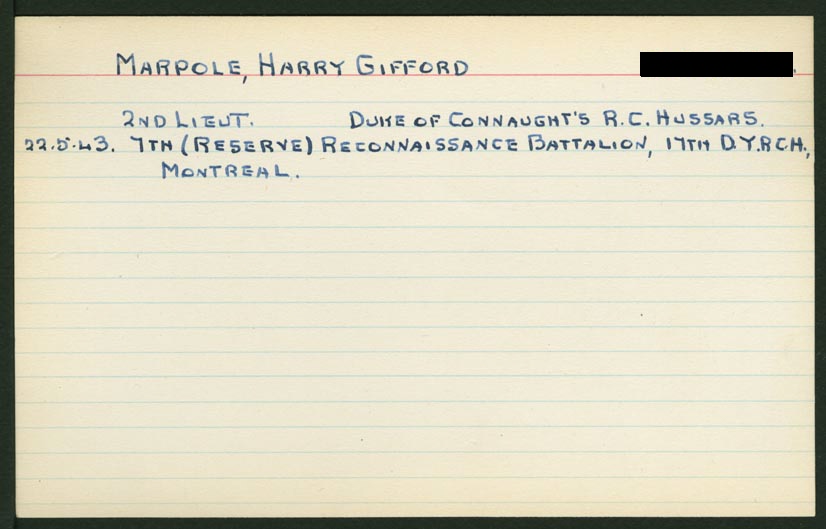 MARPOLE, HARRY GIFFORD
2ND LIEUT. DUKE OF CONNAUGHT'S R.C. HUSSARS.
22.5.43. 7TH (RESERVE) RECONNAISSANCE BATTALION, 17TH D.Y.R.C.H.,
MONTREAL.